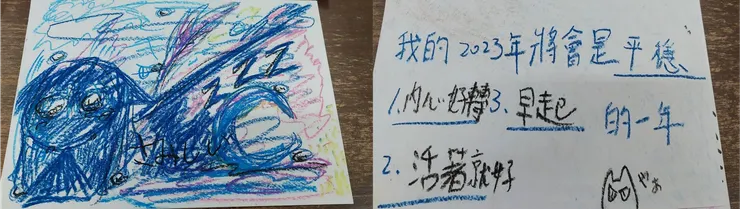 我的2023年將會是平穩
1.內心好轉 3.早起
的一年
2.活著就好